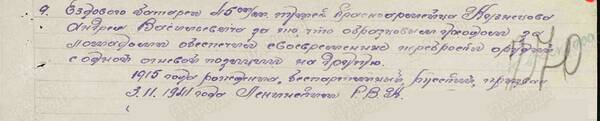 9. Ездового батареи 45 м/м. пушек Красноармейца Кузнецова
Андрея Васильевича за то, что образцовым уходом за
лошадьми обеспечил своевременные переброски орудий
с одной огневой позиции на другую.
1915 года рождения, беспартийный, Русский, призван
3.11.1941 года Ленинским Р.В.К.